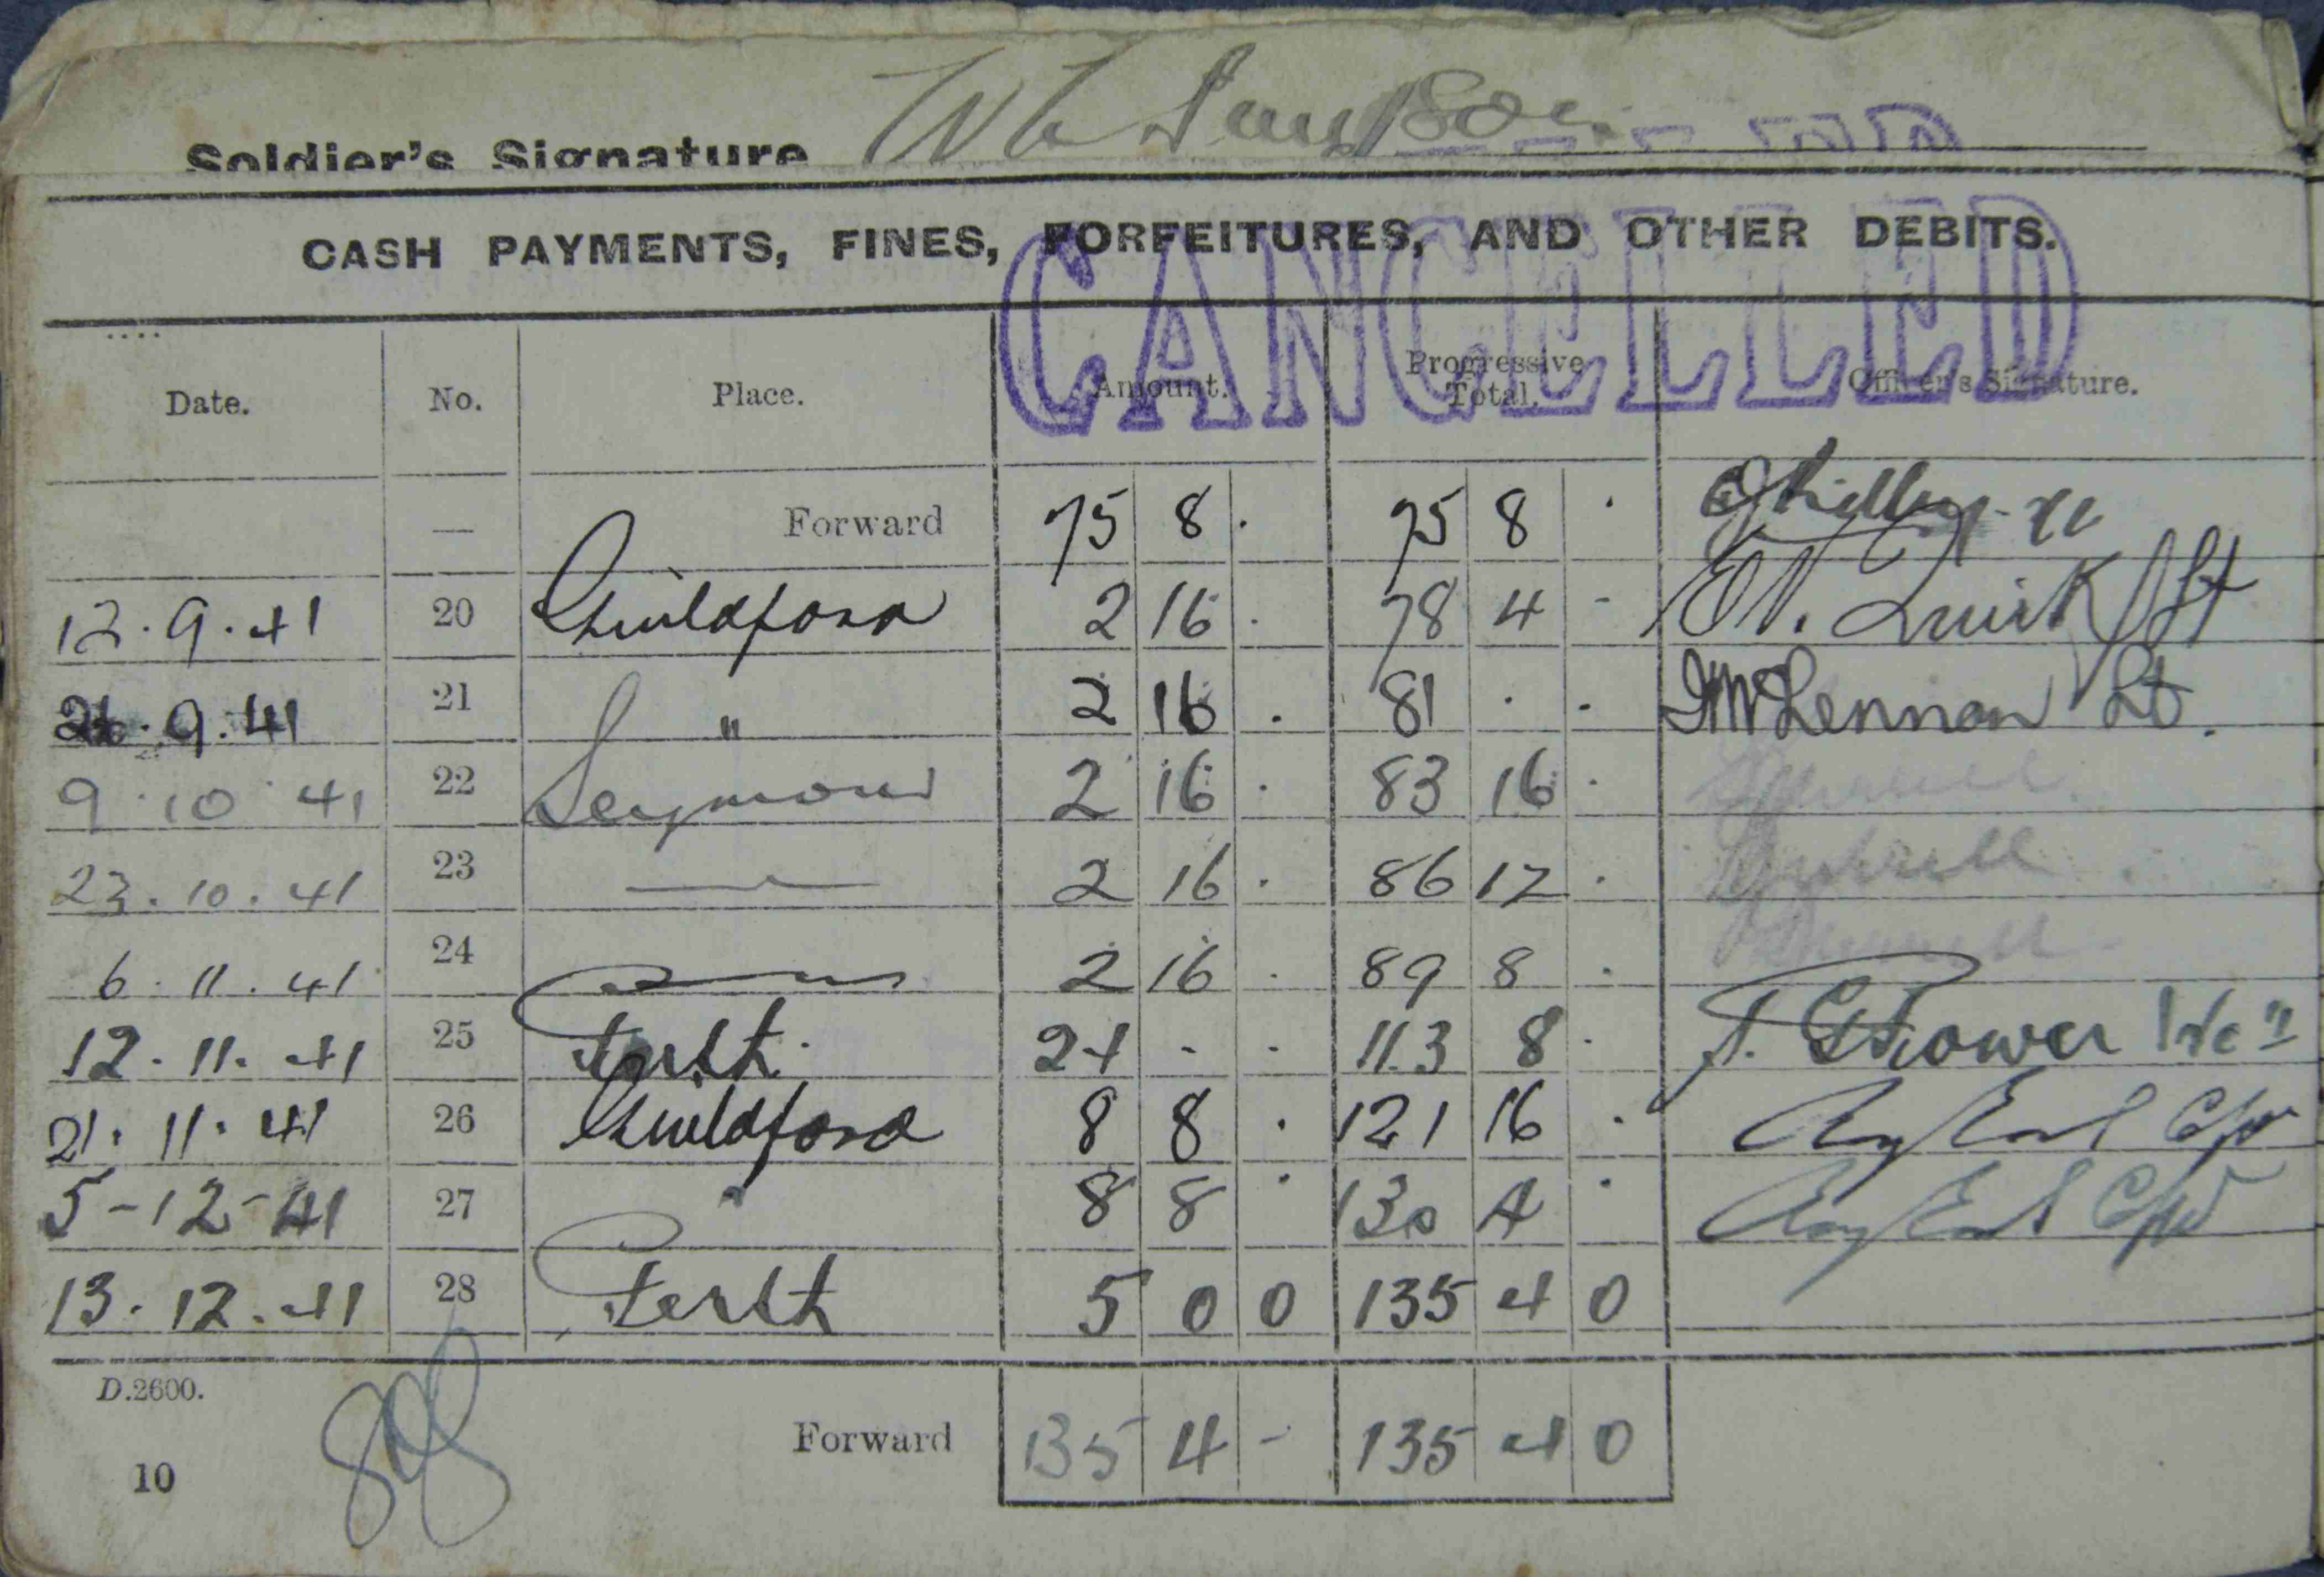 Soldier's Signature
CANCELLED
CASH PAYMENTS, FINES, FORFEITURES, AND OTHER DEBITS.
Date. No. Place. Amount. Progressive Total. Officer's Signature.
— Forward 75 8 . 75 8 .
12.9.41 20 Guildford 2 16 . 78 4 - Lt
26.9.41 21 " 2 16 . 81 . . McLennan Lt.
9.10.41 22 Seymour 2 16 . 83 16 .
23.10.41 23 2 16 . 86 12 .
6.11.41 24 2 16 . 89 8 .
12.11.41 25 Perth. 24 - - 113 8 .
21.11.41 26 Guildford 8 8 . 121 16 .
5-12-41 27 " 8 8 . 130 4 .
13.12.41 28 Perth 5 0 0 135 4 0
D.2600.
Forward 135 4 - 135 4 0
10